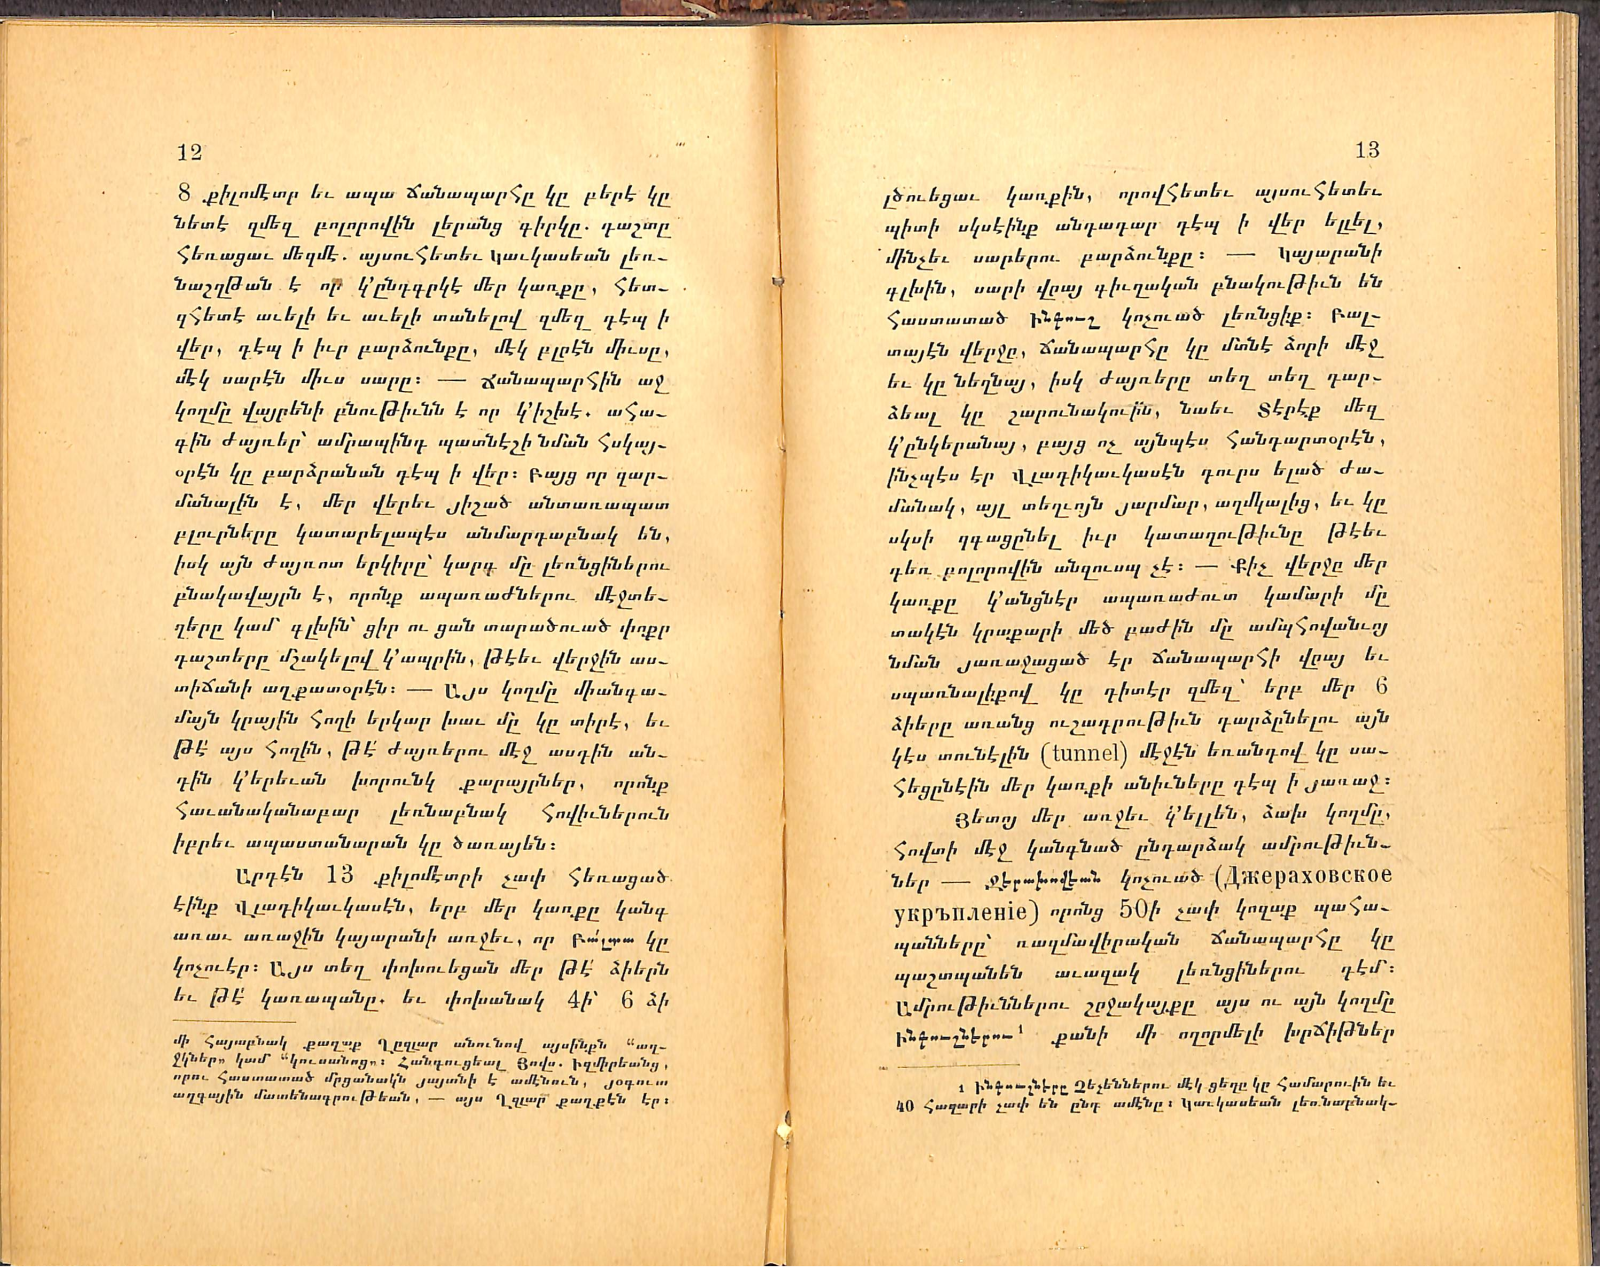 12
8 քիլոմէտր եւ ապա ճանապարհը կը բերէ կը
նետէ զմեզ բոլորովին լերանց գիրկը. դաշտը
հեռացաւ մեզմէ. այսուհետեւ կաւկասեան լեռ-
նաշղթան է որ կ՚ընդգրկէ մեր կառքը, հետ-
զհետէ աւելի եւ աւելի տանելով զմեզ դէպ ի
վեր, դէպ ի իւր բարձունքը, մէկ բլրէն միւսը,
մէկ սարէն միւս սարը։ — Ճանապարհին աջ
կողմը վայրենի բնութիւնն է որ կ՚իշխէ. ահա-
գին ժայռեր՝ ամրապինդ պատնէշի նման հսկայ-
օրէն կը բարձրանան դէպ ի վեր։ Բայց որ զար-
մանալին է, մեր վերեւ յիշած անտառապատ
բլուրները կատարելապէս անմարդաբնակ են,
իսկ այն ժայռոտ երկիրը՝ կարգ մը լեռնցիներու
բնակավայրն է, որոնք ապառաժներու մէջտե-
ղերը կամ՝ գլխին՝ ցիր ու ցան տարածուած փոքր
դաշտերը մշակելով կ՚ապրին, թէեւ վերջին աս-
տիճանի աղքատօրէն։ — Այս կողմը միանգա-
մայն կրային հողի երկար խաւ մը կը տիրէ, եւ
թէ՛ այս հողին, թէ՛ ժայռերու մէջ ասդին ան-
դին կ՚երեւան խորունկ քարայրներ, որոնք
հաւանականաբար լեռնաբնակ հովիւներուն
իբրեւ ապաստանարան կը ծառայեն։
Արդէն 13 քիլոմէտրի չափ հեռացած
էինք Վլադիկաւկասէն, երբ մեր կառքը կանգ
առաւ առաջին կայարանի առջեւ, որ Բալտա կը
կոչուէր։ Այս տեղ փոխուեցան մեր թէ՛ ձիերն
եւ թէ՛ կառապանը. եւ փոխանակ 4ի՝ 6 ձի
մի հայաբնակ քաղաք Ղըզլար անունով այսինքն “աղ-
ջկներ„ կամ “կուսանոց„։ Հանգուցեալ Յովս. Իզմիրեանց,
որու հաստատած մրցանակն յայտնի է ամէնուն, յօգուտ
ազգային մատենագրութեան, — այս Ղզլար քաղքէն էր։
13
լծուեցաւ կառքին, որովհետեւ այսուհետեւ
պիտի սկսէինք անդադար դէպ ի վեր ելլել,
մինչեւ սարերու բարձունքը։ — Կայարանի
գլխին, սարի վըայ գիւղական բնակութիւն են
հաստատած Ինքուշ կոչուած լեռնցիք։ Բալ-
տայէն վերջը, ճանապարհը կը մտնէ ձորի մէջ
եւ կը նեղնայ, իսկ ժայռերը տեղ տեղ դար-
ձեալ կը շարունակուին, նաեւ Տէրէք մեզ
կ՚ընկերանայ, բայց ոչ այնպէս հանդարտօրէն,
ինչպէս էր Վլադիկաւկասէն դուրս ելած ժա-
մանակ, այլ տեղւոյն յարմար, աղմկալից, եւ կը
սկսի զգացընել իւր կատաղութիւնը թէեւ
դեռ բոլորովին անզուսպ չէ։ — Քիչ վերջը մեր
կառքը կ՚անցնէր ապառաժուտ կամարի մը
տակէն կրաքարի մեծ բաժին մը ամպհովանւոյ
նման յառաջացած էր ճանապարհի վըայ եւ
սպառնալիքով կը դիտէր զմեզ՝ երբ մեր 6
ձիերը առանց ուշադրութիւն դարձընելու այն
կէս տունէլին (tunnel) մէջէն եռանդով կը սա-
հեցընէին մեր կառքի անիւները դէպ ի յառաջ։
Յետոյ մեր առջեւ կ՚ելլեն, ձախ կողմը,
հովտի մէջ կանգնած ընդարձակ ամրութիւն-
ներ — Ջէրախովեան կոչուած (Джераховское
укрѣпленіе) որոնց 50ի չափ կողաք պահա-
պանները՝ ռազմավիրական ճանապարհը կը
պաշտպանեն աւազակ լեռնցիներու դէմ։
Ամրութիւններու շրջակայքը այս ու այն կողմը
Ինքուշներու¹ քանի մի ողորմելի խրճիթներ
1 Ինքուշները Չեչեններու մէկ ցեղը կը համարուին եւ
40 հազարի չափ են ընդ ամէնը։ Կաւկասեան լեռնաբնակ-